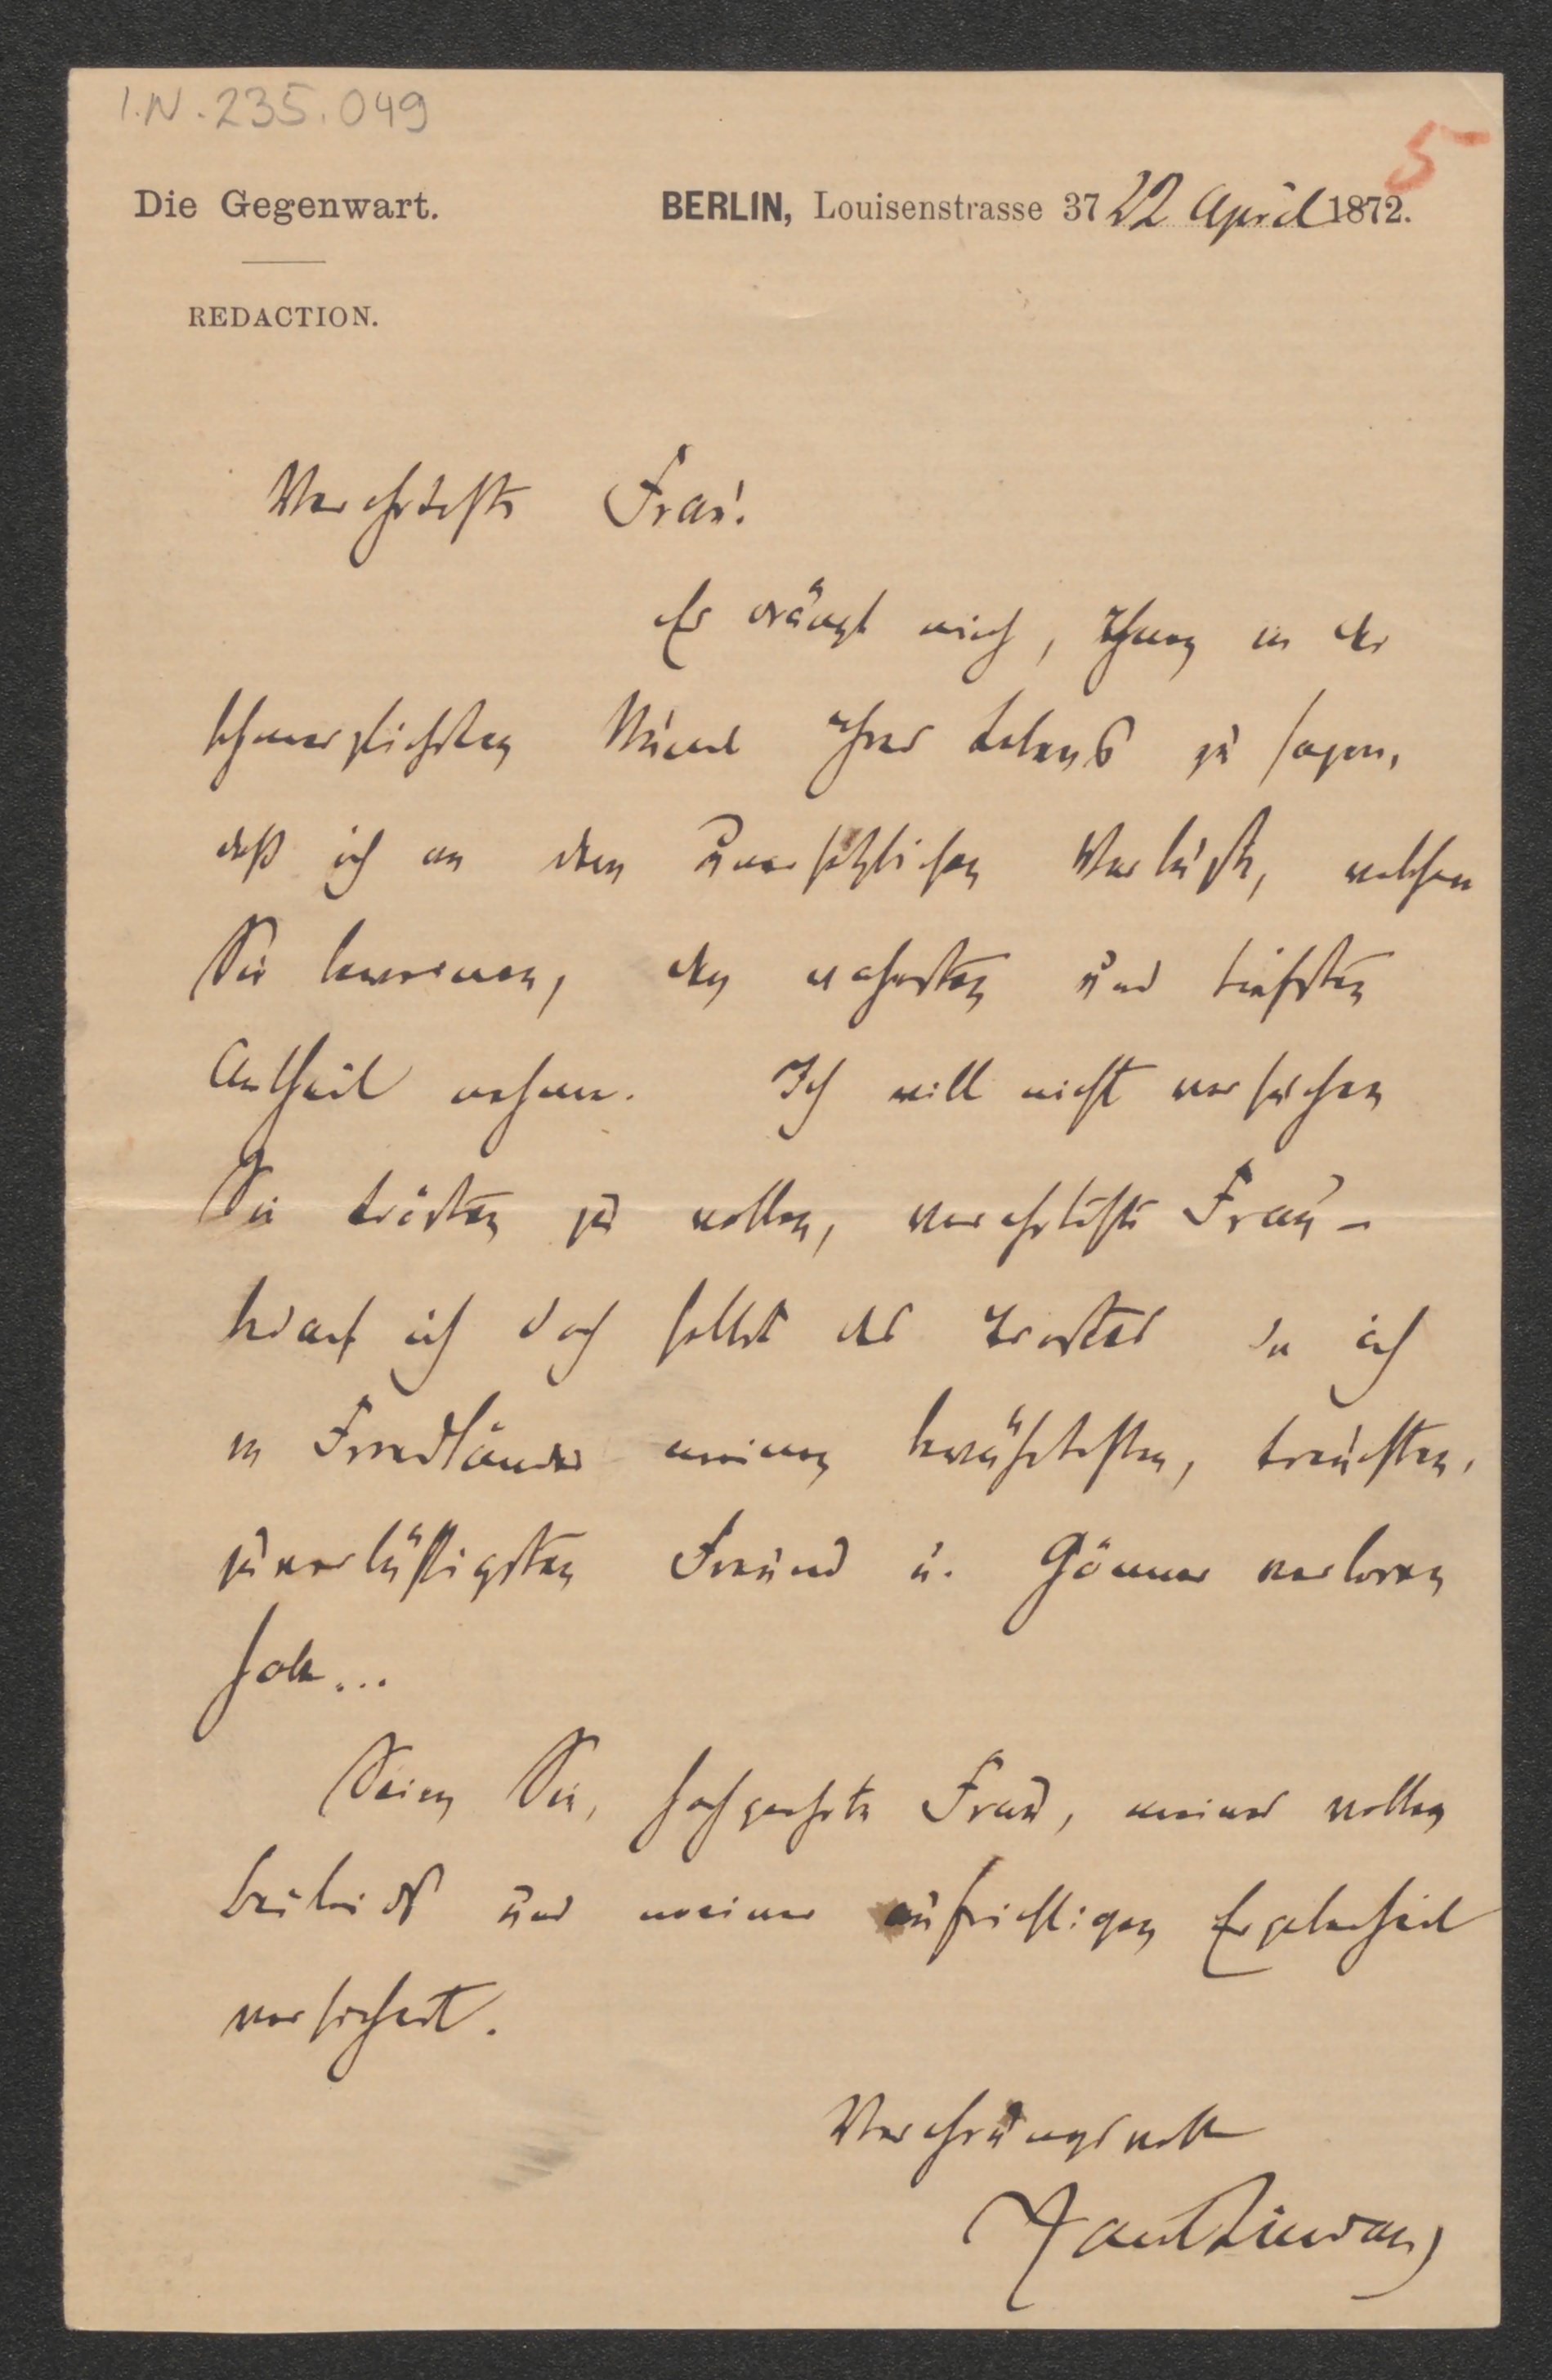 I.N. 235.049
5
Die Gegenwart. BERLIN, Louisenstrasse 37 22 April 1872.
REDACTION.
Verehrteste Frau!
Es drängt mich, Ihnen in der
schmerzlichsten Stunde Ihres Lebens zu sagen,
daß ich an dem unersetzlichen Verluste, welchen
Sie beweinen, den wahrsten und tiefsten
Antheil nehme. Ich will nicht versuchen
Sie trösten zu wollen, verehrteste Frau –
bedarf ich doch selbst des Trostes da ich
in Friedländer meinen bewährtesten, treusten,
zuverläßigsten Freund u. Gönner verloren
habe...
Seien Sie, hochgeehrte Frau, meines vollen
Beileids und meiner aufrichtigen Ergebenheit
versichert.
Verehrungsvoll
Paul Lindau